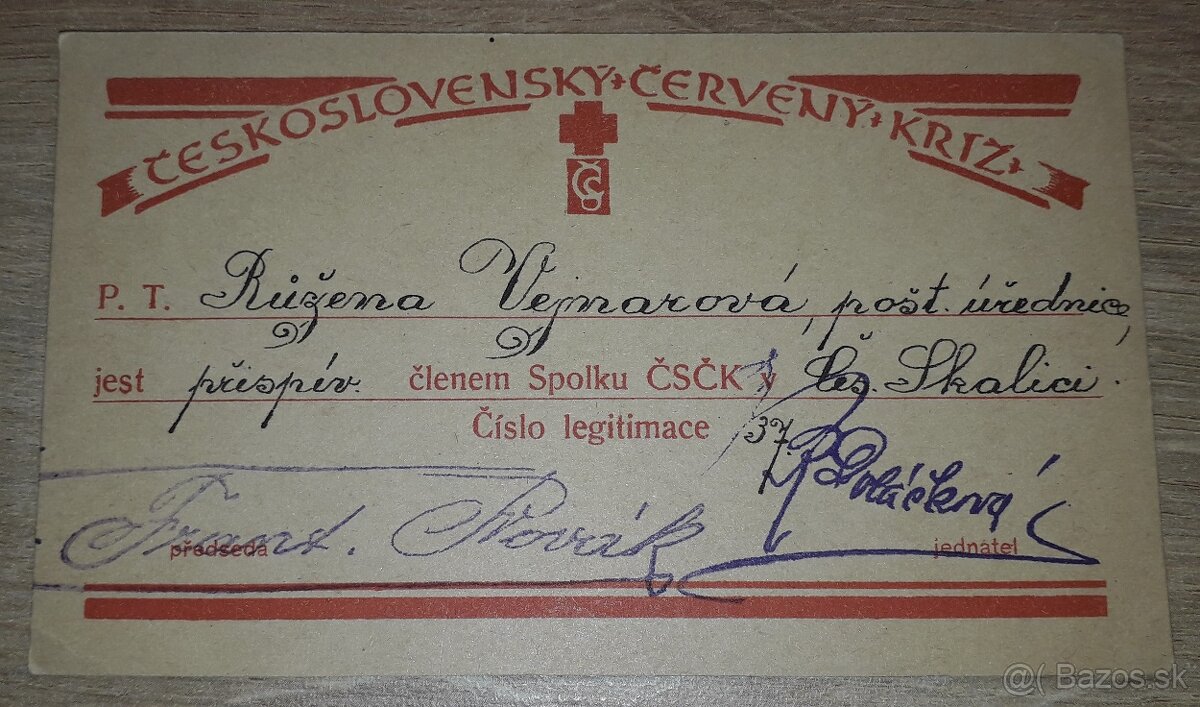 ČESKOSLOVENSKÝ ČERVENÝ KŘÍŽ
ČS
P. T. Růžena Vejnarová, pošt. úřednice,
jest přispív. členem Spolku ČSČK v Čes. Skalici.
Číslo legitimace 37.
Frant. Novák
předseda jednatel
@( Bazos.sk